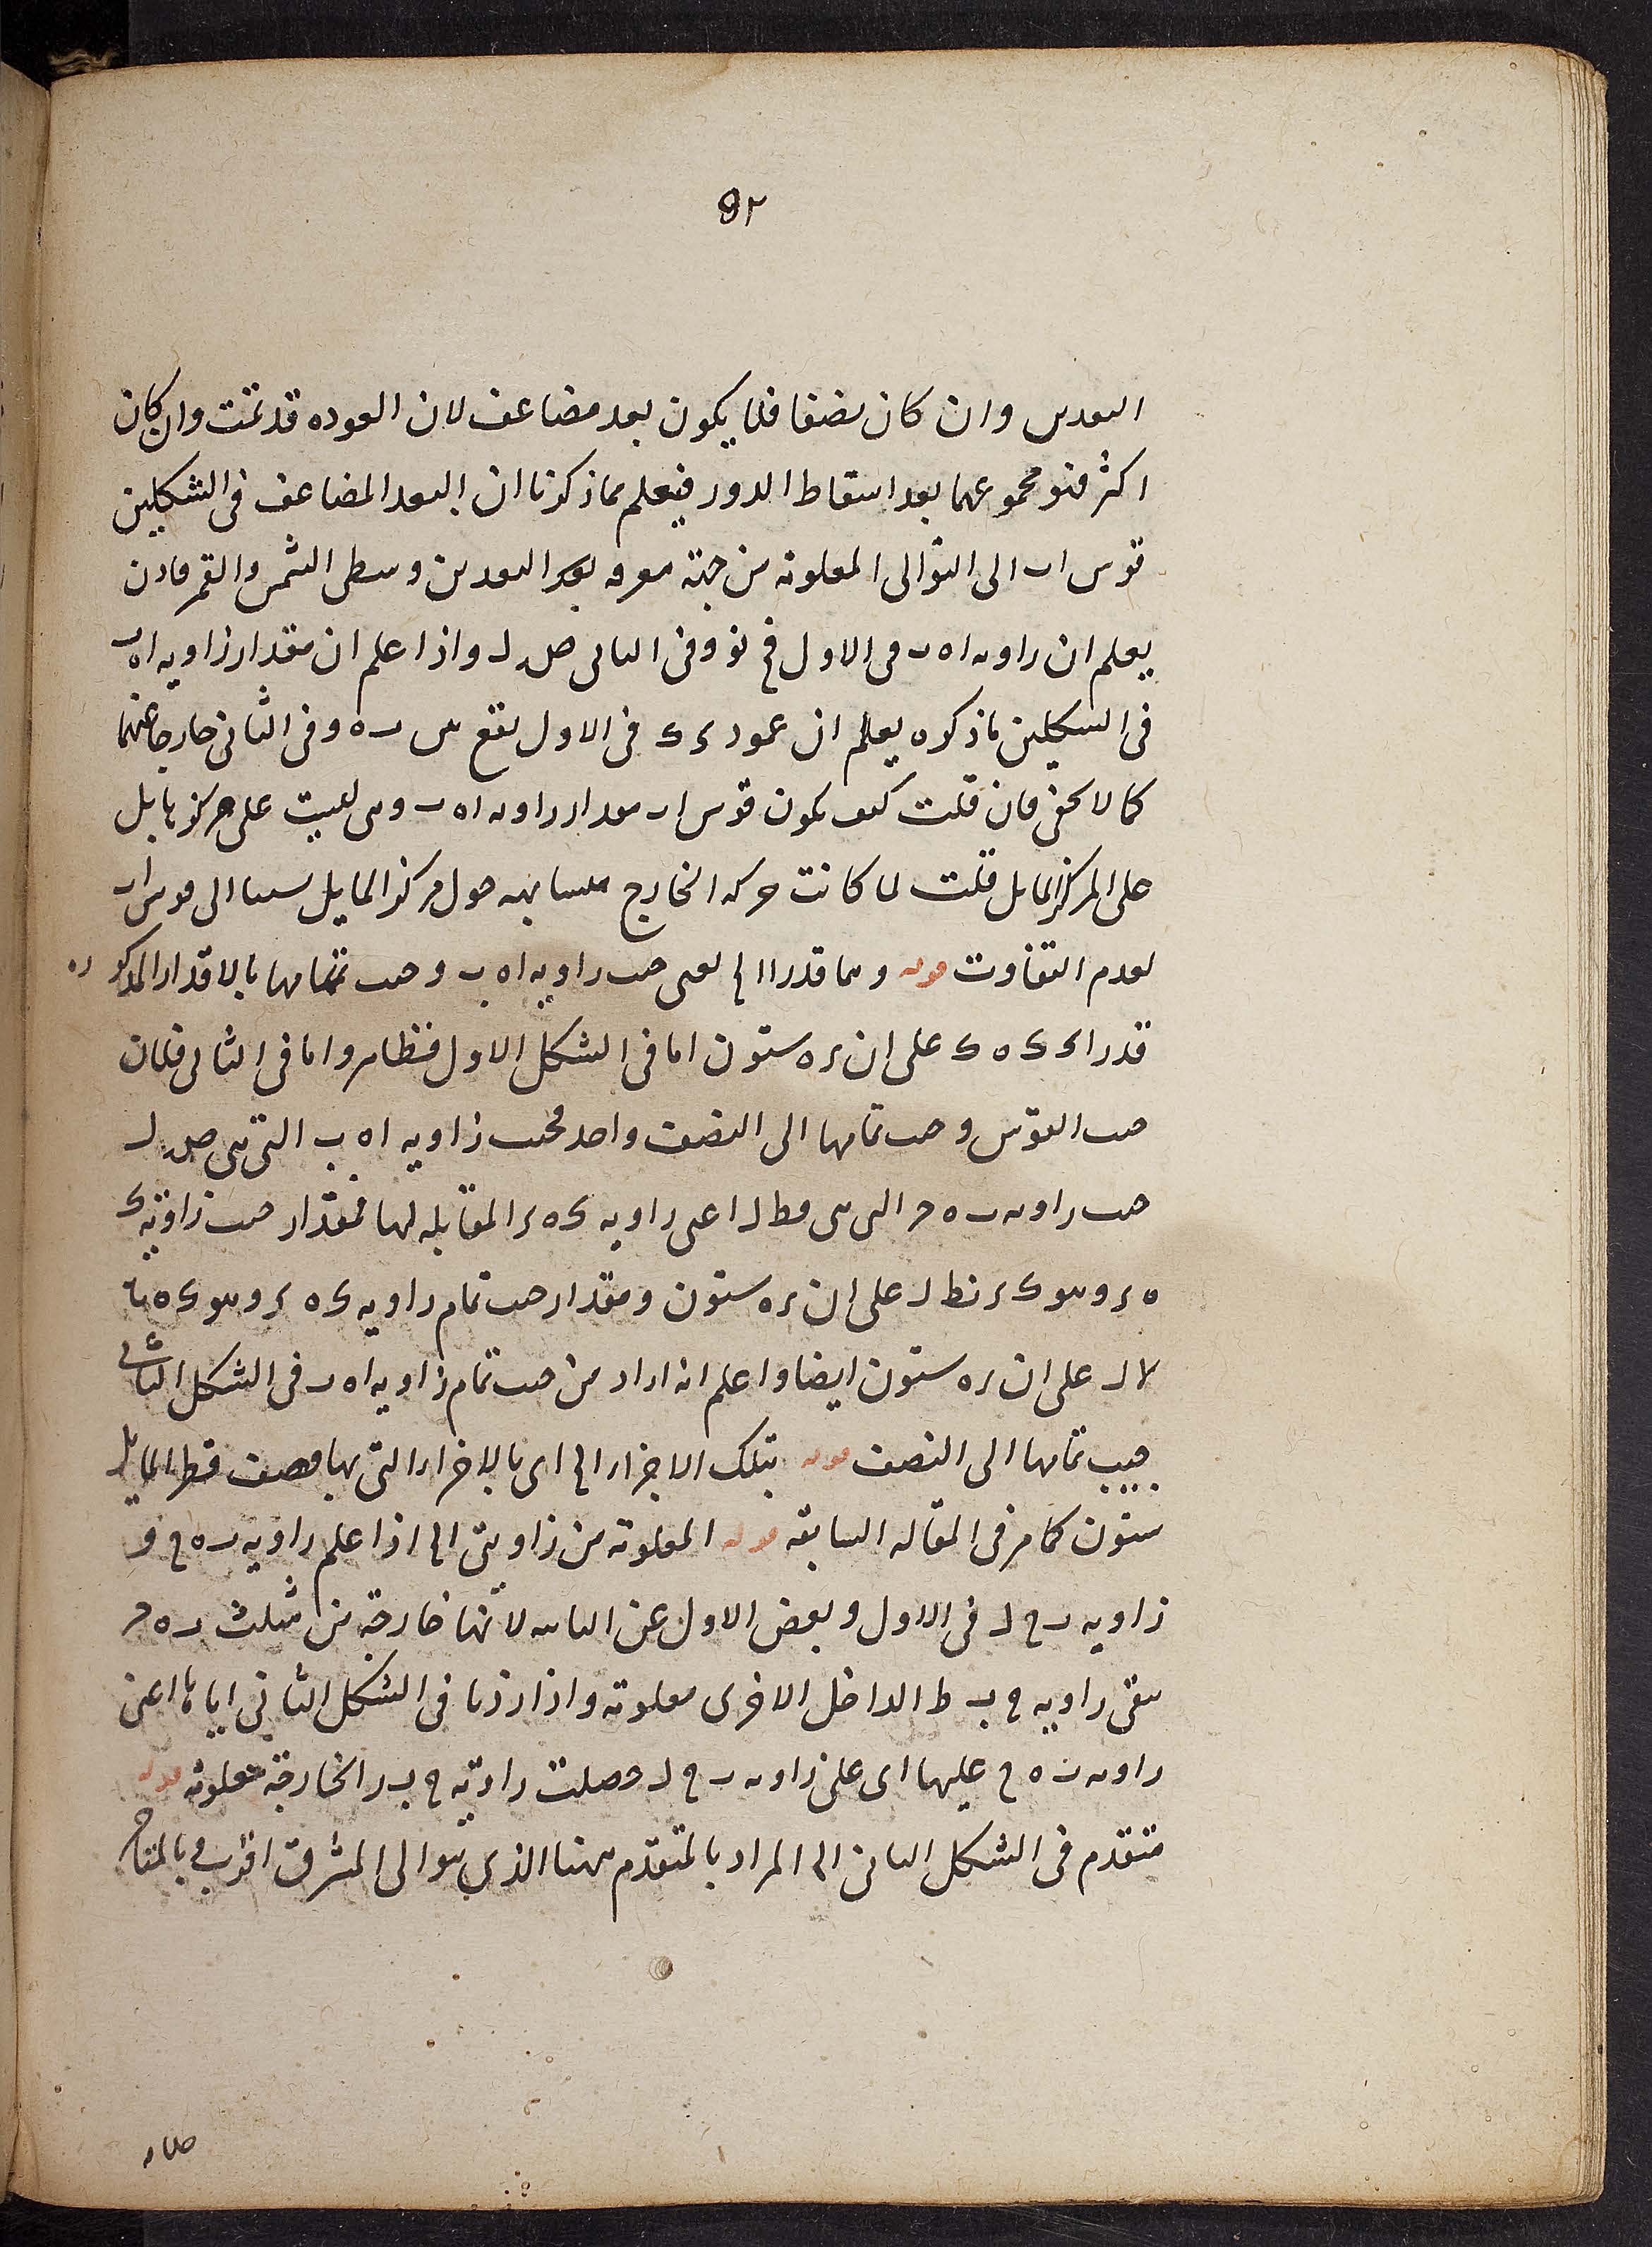 ٩٢
البعدين وان كان نصفا فلا يكون بعد مضاعف لان العوده قد تمت وان كان
اكثر فهو مجموعهما بعد اسقاط الدور فيعلم مما ذكرنا ان البعد المضاعف فى الشكلين
قوس اب الى التوالى المعلومة من جهة معرفه بعد البعدين وسطى الشمس والقمر فاذن
يعلم ان زاويه اه ب فى الاول ف نو وفى الثانى صل ل واذا علم ان مقدار زاويه اه ب
فى الشكلين ما ذكره يعلم ان عمود ى ك فى الاول يقع بين ب ه وفى الثانى خارجا عنهما
كما لا يخفى فان قلت كيف يكون قوس اب مقدار زاويه اه ب وهى ليست على مركز ها بل
على المركز المايل قلت لما كانت حركه الخارج متشابهه حول مركز المايل الى قوس اب
لعدم التفاوت قوله وهما قدرا الخ يعنى جيب زاويه اه ب وجيب تمامها بالاقدار المذكوره
قدرا ى ك ه ك على ان ى ه ستون اما فى الشكل الاول فظاهر واما فى الثانى فلان
جيب القوس وجيب تمامها الى النصف واحد فجيب زاويه اه ب التى هى صل ل
جيب زاويه ب ه ح التى هى فط ل اعنى زاويه ك ه ى المقابله لها فمقدار جيب زاوية ك
ه ى وهو ك ى نط ل على ان ى ه ستون ومقدار جيب تمام زاويه ك ه ى وهو ك ه
لا ل على ان ى ه ستون ايضا واعلم انه اراد من جيب تمام زاويه اه ب فى الشكل الثانى
جيب تمامها الى النصف قوله بتلك الاجزاء الخ اى بالاجزاء التى بها نصف قطر المايل
ستون كما مر فى المقاله السابقه قوله المعلومة من زاويتى الخ اذا علم زاويه ب ه ح و
زاويه ب ح ل فى الاول وبعض الاول عن الثانيه لانها خارجة من مثلث ب ه ح
يبقى زاويه ح ب ط الداخل الاخرى معلومة واذا زدنا فى الشكل الثانى اياها اعنى
زاويه ب ه ح عليها اى على زاويه ب ح ل حصلت زاوية ح ب ر الخارجة معلومة قوله
متقدم فى الشكل الثانى الخ المراد بالمتقدم ههنا الذى هو الى المشرق اقرب وبالمتاخر